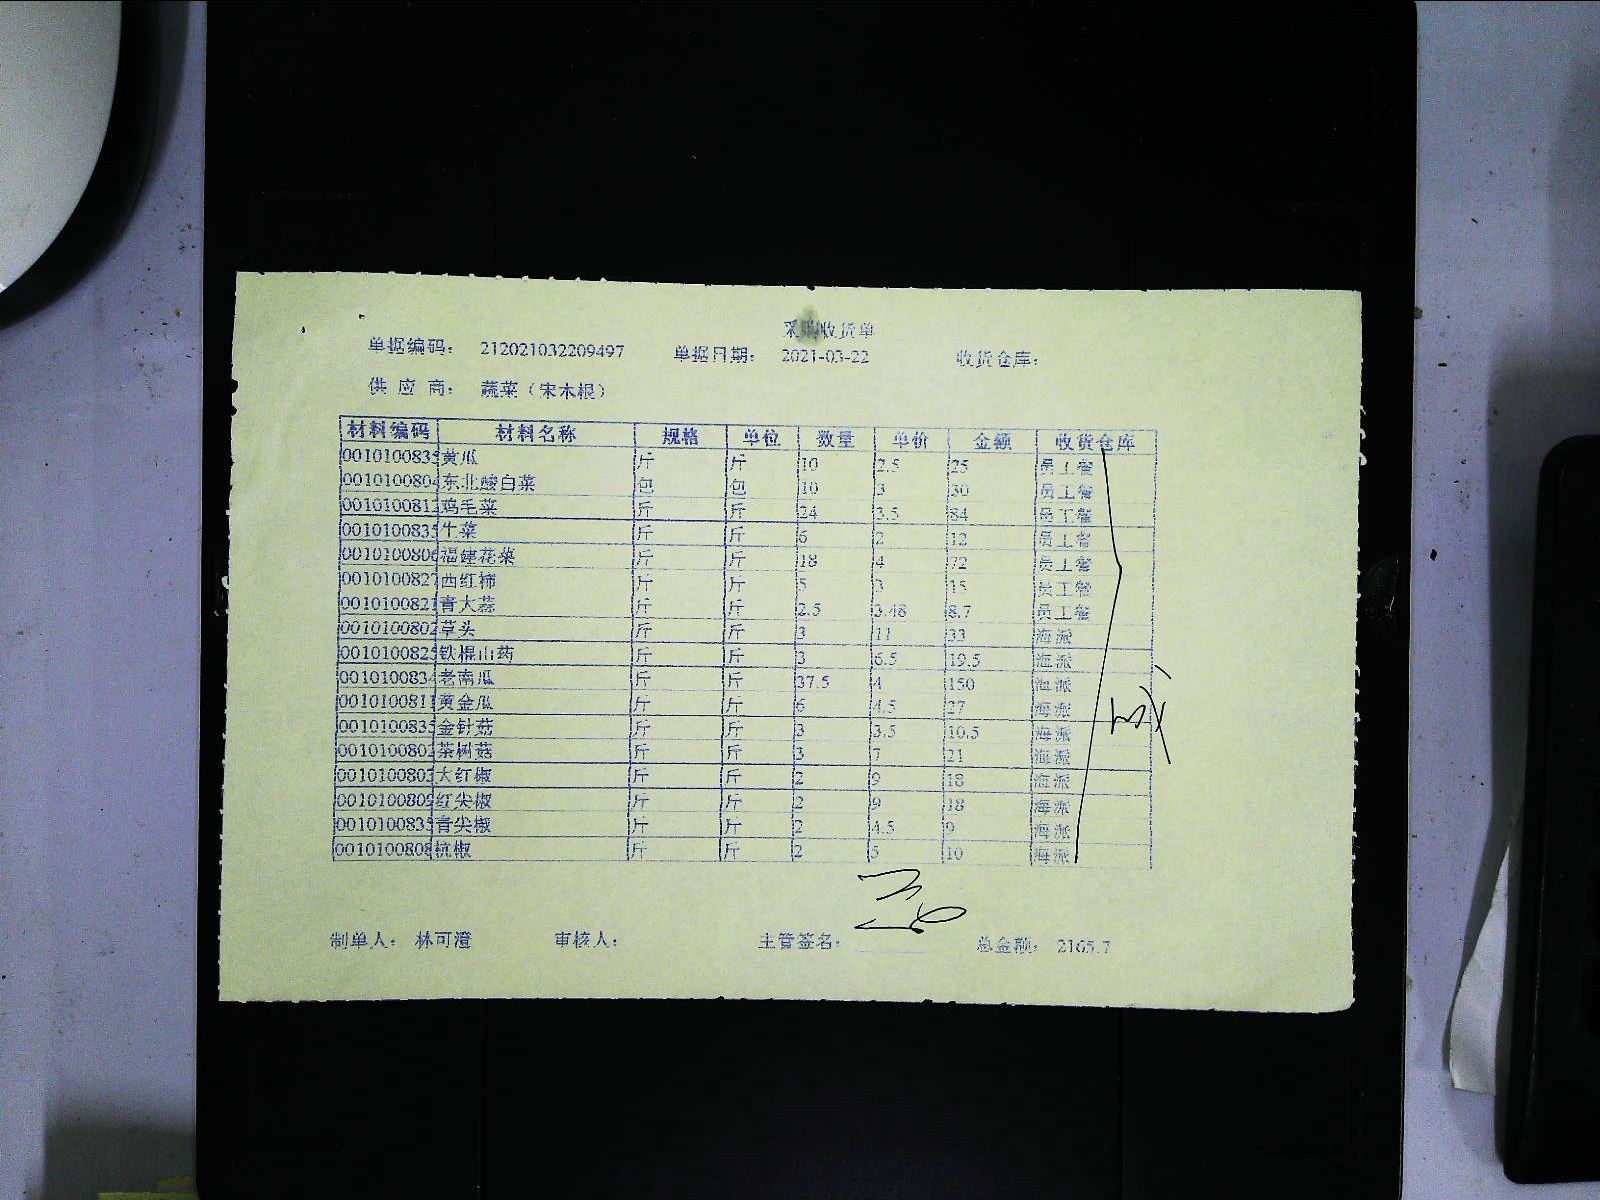 采购收货单
单据编码： 212021032209497 单据日期： 2021-03-22 收货仓库：
供 应 商： 蔬菜（宋木根）
材料编码 材料名称 规格 单位 数量 单价 金额 收货仓库
0010100835 黄瓜 斤 斤 10 2.5 25 员工餐
0010100804 东北酸白菜 包 包 10 3 30 员工餐
0010100812 鸡毛菜 斤 斤 24 3.5 84 员工餐
0010100835 牛菜 斤 斤 6 2 12 员工餐
0010100806 福建花菜 斤 斤 18 4 72 员工餐
0010100827 西红柿 斤 斤 5 3 15 员工餐
0010100821 青大蒜 斤 斤 2.5 3.48 8.7 员工餐
0010100802 草头 斤 斤 3 11 33 海派
0010100825 铁棍山药 斤 斤 3 6.5 19.5 海派
0010100834 老南瓜 斤 斤 37.5 4 150 海派
0010100811 黄金瓜 斤 斤 6 4.5 27 海派
0010100835 金针菇 斤 斤 3 3.5 10.5 海派
0010100802 茶树菇 斤 斤 3 7 21 海派
0010100803 大红椒 斤 斤 2 9 18 海派
0010100809 红尖椒 斤 斤 2 9 18 海派
0010100835 青尖椒 斤 斤 2 4.5 9 海派
0010100808 杭椒 斤 斤 2 5 10 海派
制单人： 林可澄 审核人： 主管签名： 总金额： 2165.7